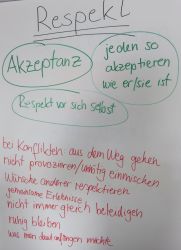 Respekt
Akzeptanz
jeden so
akzeptieren
wie er/sie ist
Respekt vor sich selbst
bei Konflikten aus dem Weg gehen
nicht provozieren/unnötig einmischen
Wünsche anderer respektieren
gemeinsame Erlebnisse
nicht immer gleich beleidigen
ruhig bleiben
was man damit anfangen möchte